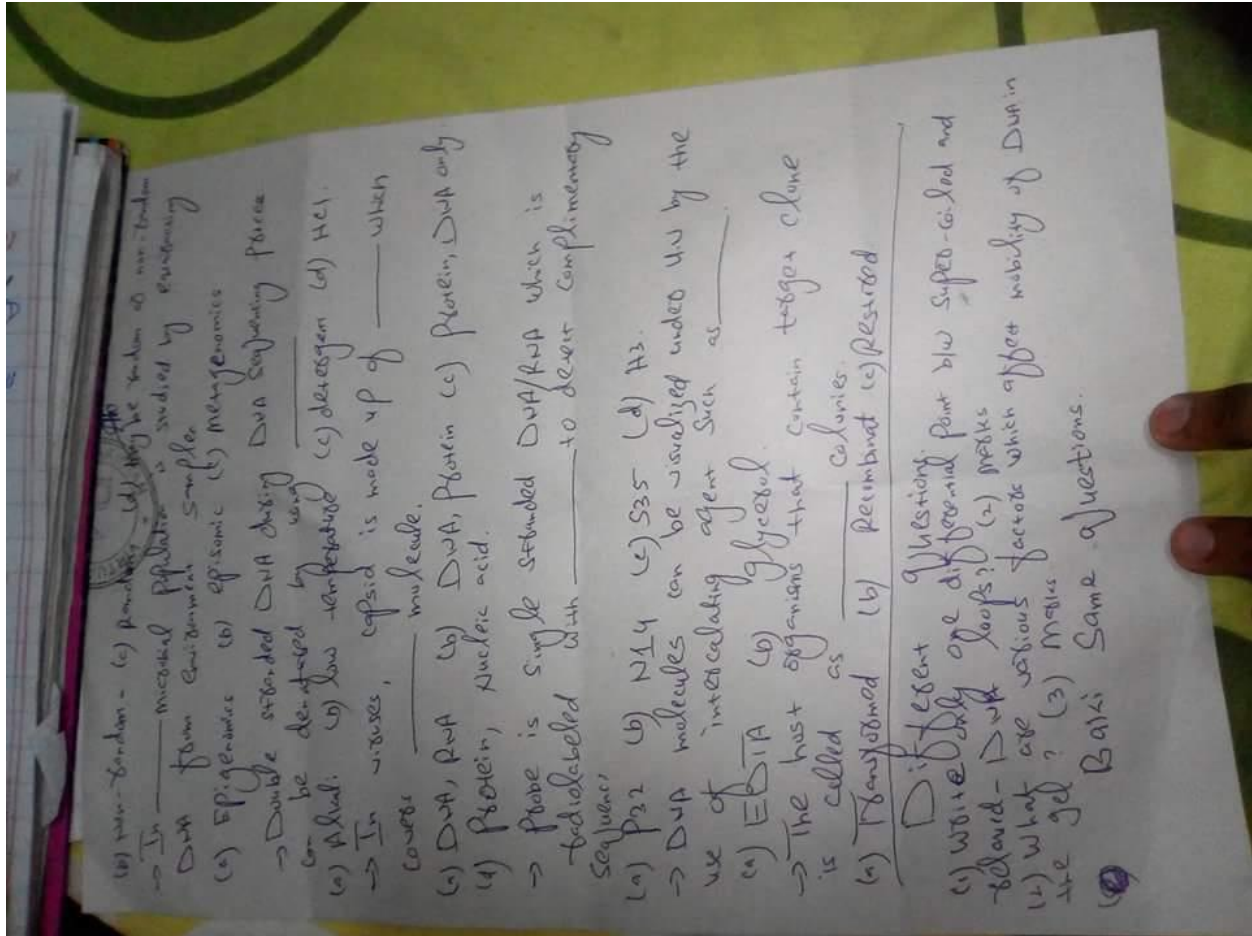 (b) non-random - (c) random (d) may be random or non-random
→ In ——— microbial population is studied by
DNA from environment sample.
(a) Epigenomics (b) episomic (c) metagenomics
→ Double stranded DNA during DNA sequencing
can be denatured by using ———
(a) Alkali (b) low temperature (c) detergent (d) HCl.
→ In viruses, capsid is made up of ——— which
covers ——— molecule.
(a) DNA, RNA (b) DNA, Protein (c) protein, DNA only
(d) Protein, Nucleic acid.
→ Probe is single stranded DNA/RNA which is
radiolabeled with ——— to detect complimentary
sequence,
(a) P32 (b) N14 (c) S35 (d) H3.
→ DNA molecules can be visualized under U.V by the
use of intercalating agent such as ———
(a) EDTA (b) glycerol.
→ The host organisms that contain target clone
is called as ——— colonies.
(a) Transformed (b) Recombinat (c) Restored
Different questions.
(1) Write only one differential point b/w super-coiled and
relaxed-DNA loops? (2) marks
(2) What are various factors which affect mobility of DNA in
the gel? (3) marks
Baki Same questions.